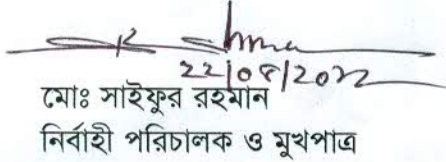 22/08/2022
মোঃ সাইফুর রহমান
নির্বাহী পরিচালক ও মুখপাত্র